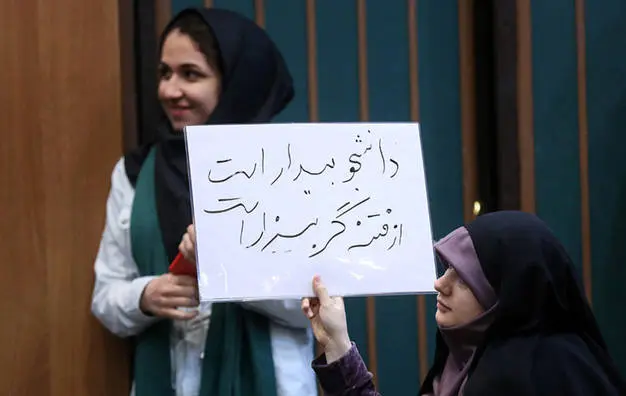 دانشجو بیدار است
از فتنه گر بیزار است